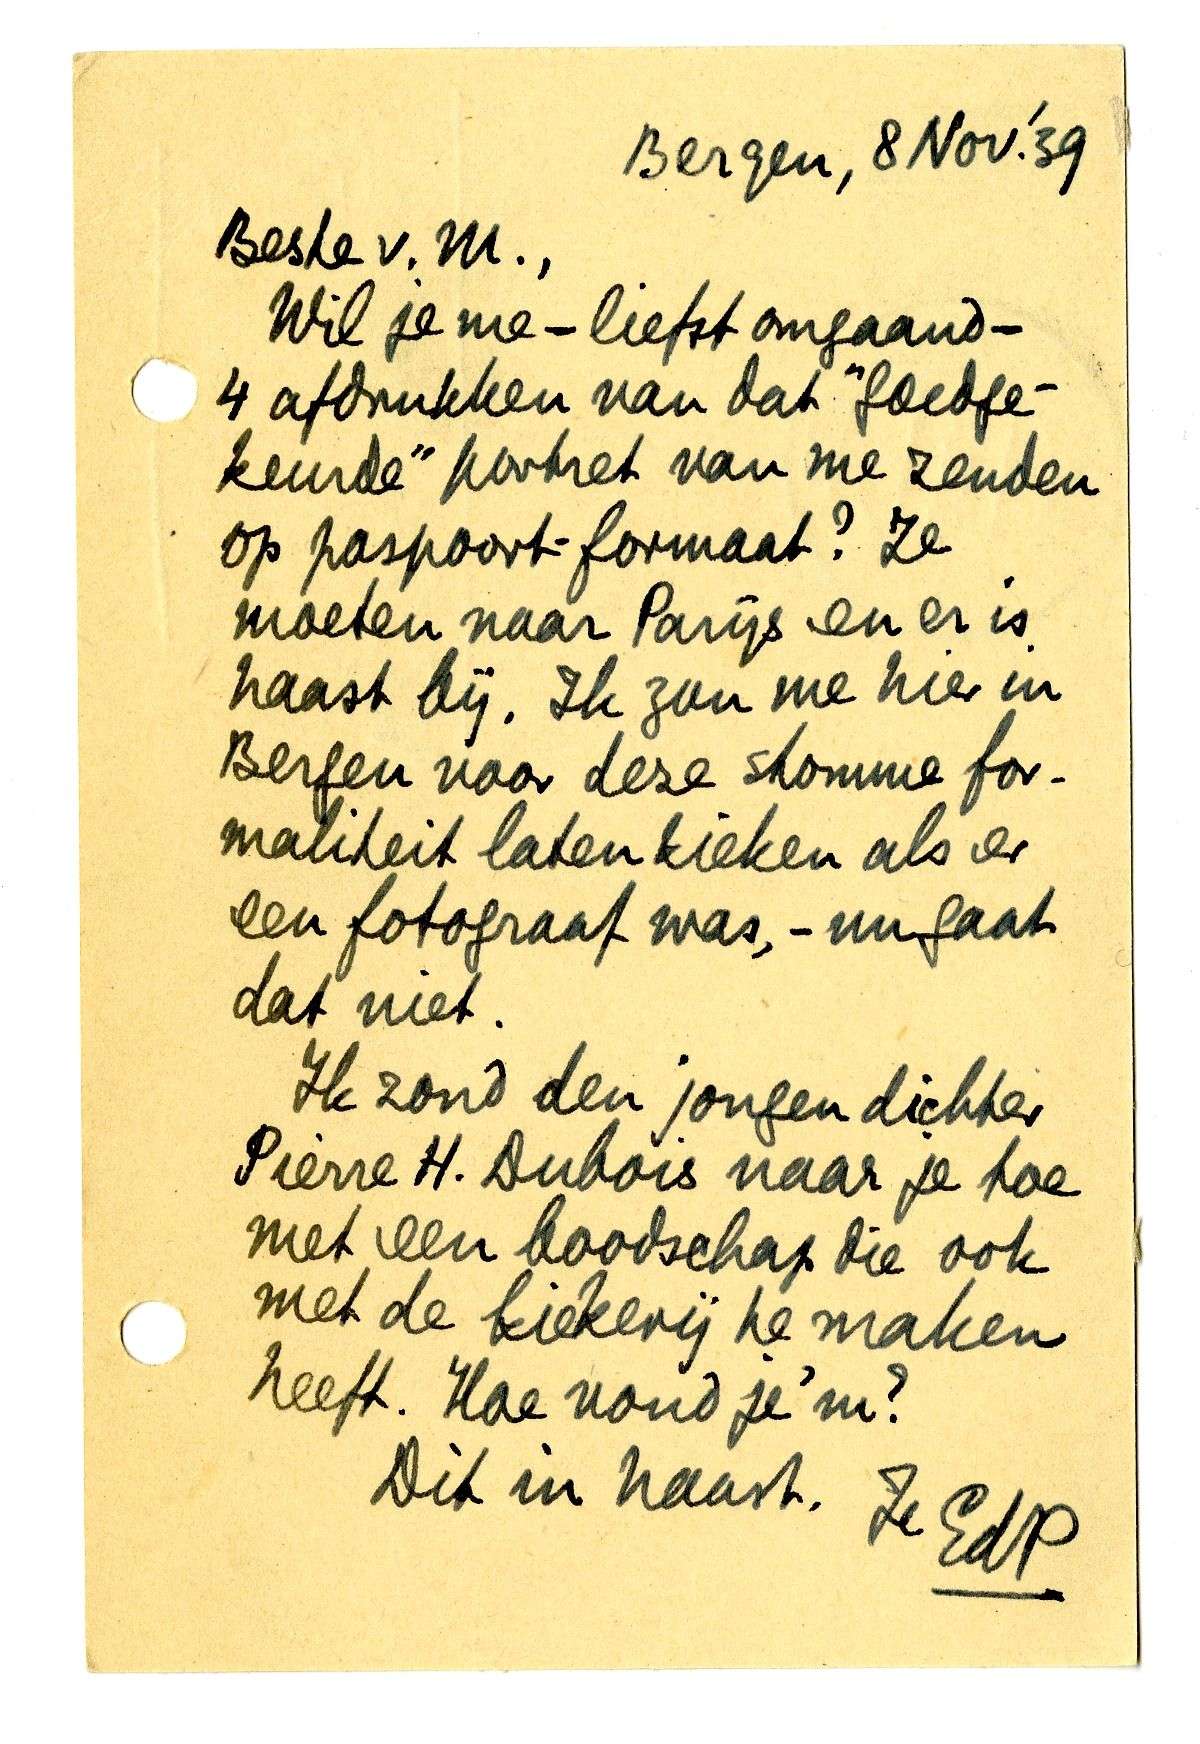 Bergen, 8 Nov. '39
Beste v. M.,
Wil je me – liefst omgaand –
4 afdrukken van dat "goedge-
keurde" portret van me zenden
op paspoort-formaat? Ze
moeten naar Parijs en er is
haast bij. Ik zou me hier in
Bergen voor deze stomme for-
maliteit laten kieken als er
een fotograaf was, – nu gaat
dat niet.
Ik zond den jongen dichter
Pierre H. Dubois naar je toe
met een boodschap die ook
met de kiekerij te maken
heeft. Hoe vond je 'm?
Dit in haast. Je
EdP